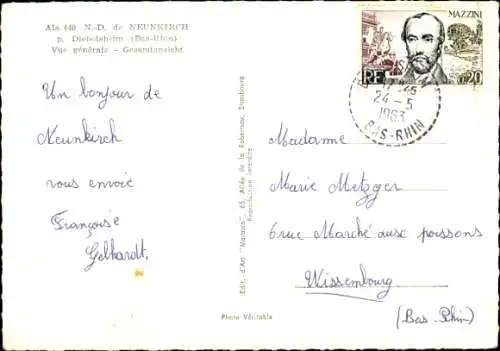 Als 640 N.-D. de NEUNKIRCH
p. Diebolsheim (Bas-Rhin)
Vue générale - Gesamtansicht
Un bonjour de
Neunkirch
vous envoie
Françoise
Gelhardt.
Edit. d'Art "Marasco", 65, Allée de la Robertsau, Strasbourg
Reproduction interdite
Photo Véritable
MAZZINI
0.20
24-5
1963
BAS-RHIN
Madame
Marie Metzger
6 rue Marché aux poissons
Wissembourg.
(Bas-Rhin)